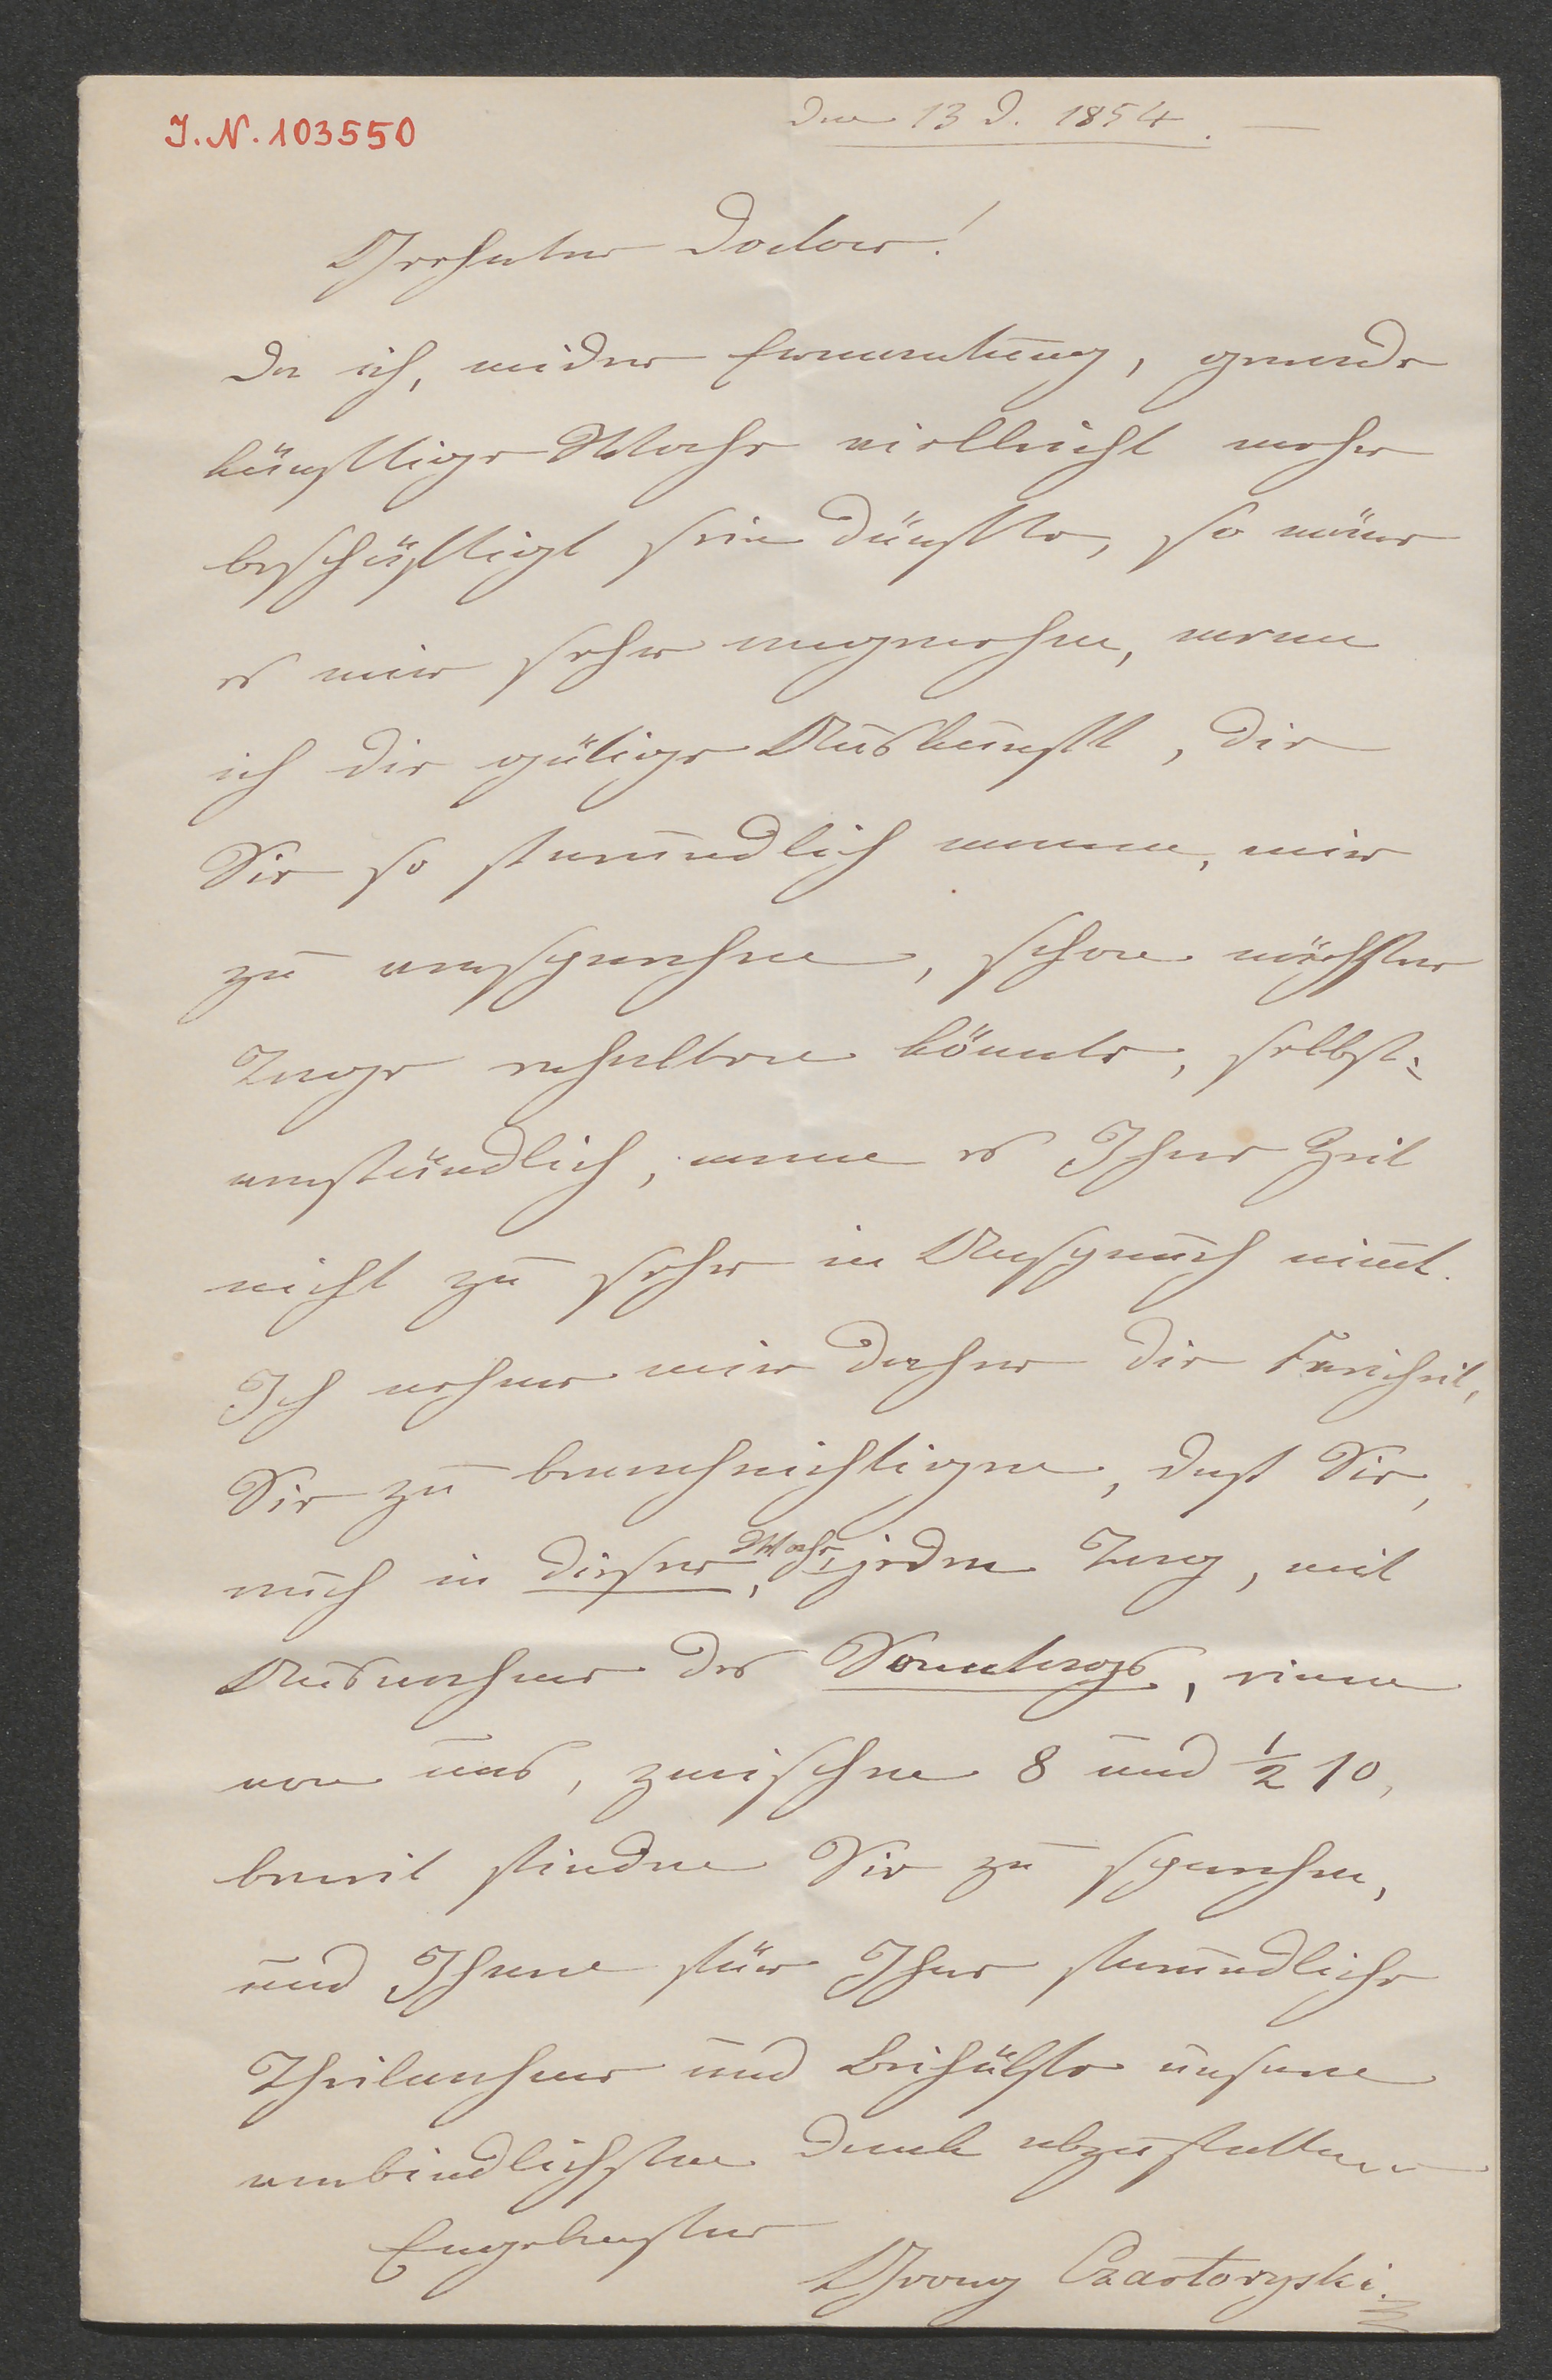 J.N. 103550
den 13 D. 1854. —
Geehrter Doctor!
Da ich, wider Erwartung, gerade
künftige Woche vielleicht mehr
beschäftigt sein dürfte, so wäre
es mir sehr angenehm, wenn
ich die gütige Auskunft, die
Sie so freundlich waren, mir
zu versprechen, schon nächster
Tage erhalten könnte, selbst=
verständlich, wenn es Ihre Zeit
nicht zu sehr in Anspruch nim̄t.
Ich nehme mir daher die Freiheit,
Sie zu benachrichtigen, daß Sie,
auch in dieser Woche, jeden Tag, mit
Ausnahme des Sonntags, einen
von uns, zwischen 8 und ½ 10,
bereit finden Sie zu sprechen,
und Ihnen für Ihre freundliche
Theilnahme und Beihülfe unseren
verbindlichsten Dank abzustatten
Ergebenster
Georg Czartoryski.